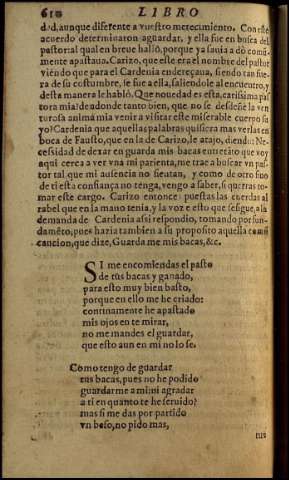 610 LIBRO
d?d, aunque diferente a vuestro merecimiento. Con este
acuerdo determinaron aguardar, y ella fue en busca del
pastor: al qual en breue hallò, porque ya sauia a dò comũ-
mente apastaua. Carizo, que este era el nombre del pastor
viẽndo que para el Cardenia endereçaua, siendo tan fue-
ra de su costumbre, se fue a ella, saliendole al encuentro, y
desta manera le hablò. Que nouedad es esta, carissima pas
tora mia? de adonde tanto bien, que no se desdeñe la ven
turosa anima mia venir a visitar este miserable cuerpo su
yo? Cardenia que aquellas palabras quisiera mas verlas en
boca de Fausto, que en la de Carizo, le atajo, diendo: Ne-
cessidad de dexar en guarda mis bacas entretãto que voy
aqui cerca a ver vna mi parienta, me trae a buscar vn pas-
tor tal que mi ausencia no sientan, y como de otro sino
de ti esta confiança no tenga, vengo a saber, si queras to-
mar este cargo. Carizo entonce: puestas las cuerdas al
rabel que en la mano tenia, y la voz e esto que se sigue, a la
demanda de Cardenia assi respondio, tomando por fun-
damẽto, pues hazia tambien a su proposito aquella comũ
cancion, que dize, Guarda me mis bacas, &c.
SI me encomiendas el pasto
de tus bacas y ganado,
para esto muy bien basto,
porque en ello me he criado:
continamente he apastado
mis ojos en te mirar,
no me mandes el guardar,
que esto aun en mi no lo se.
Como tengo de guardar
tus bacas, pues no he podido
guardarme a mi ni agradar
a ti en quanto te he seruido?
mas si me das por partido
vn beso, no pido mas,